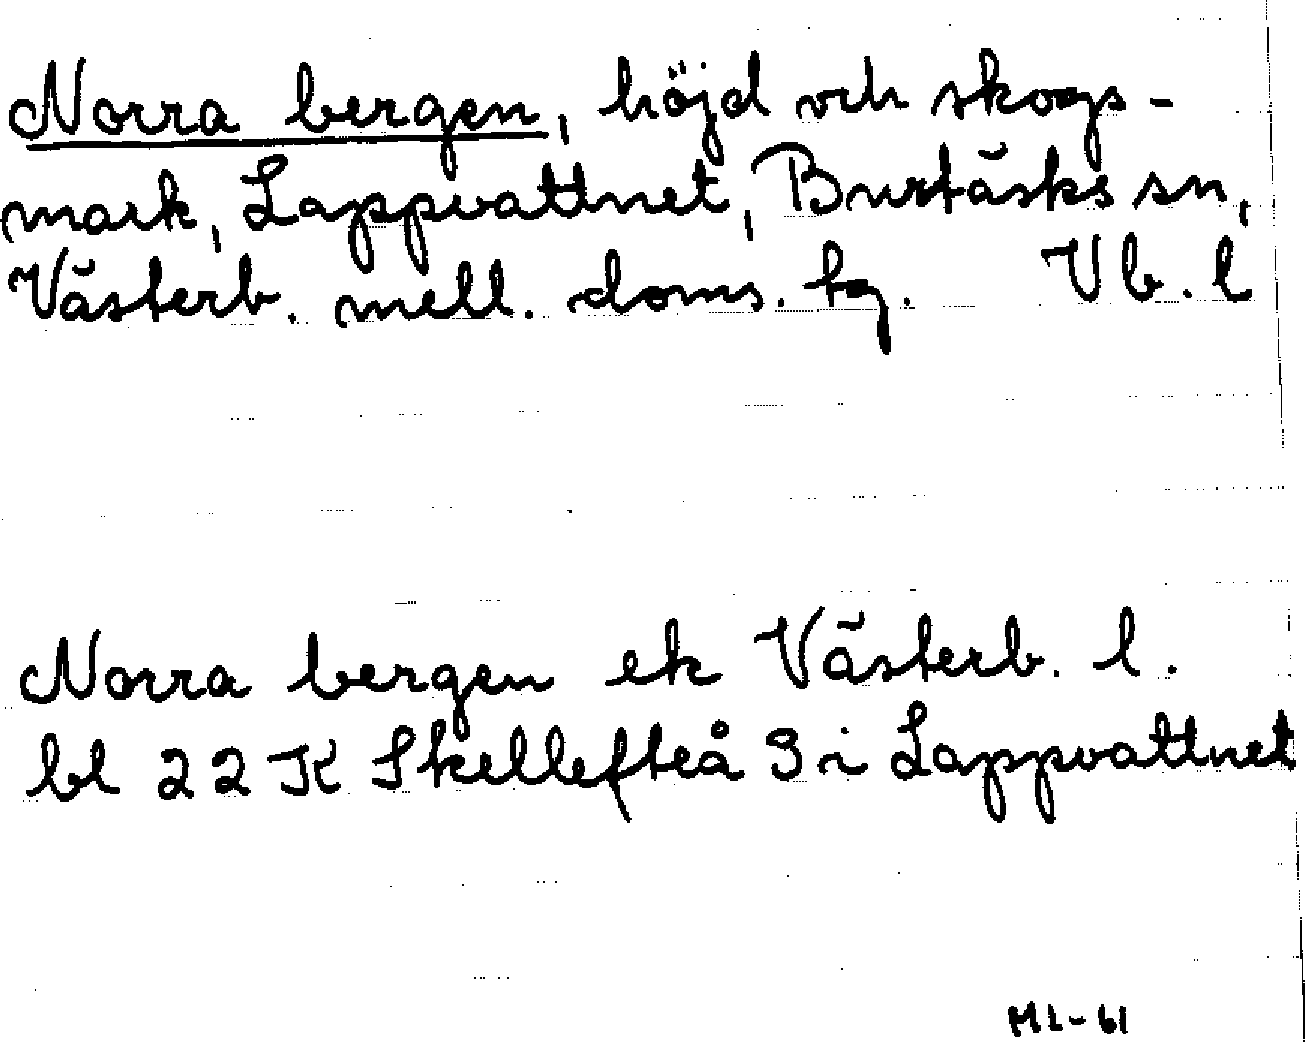 Norra bergen, höjd och skogs-
mark, Lappvattnet, Burträsks sn,
Västerb. mell. doms. tg. Vb. l
Norra bergen ek Västerb. l.
bl 22 K Skellefteå 3 i Lappvattnet
ML-61